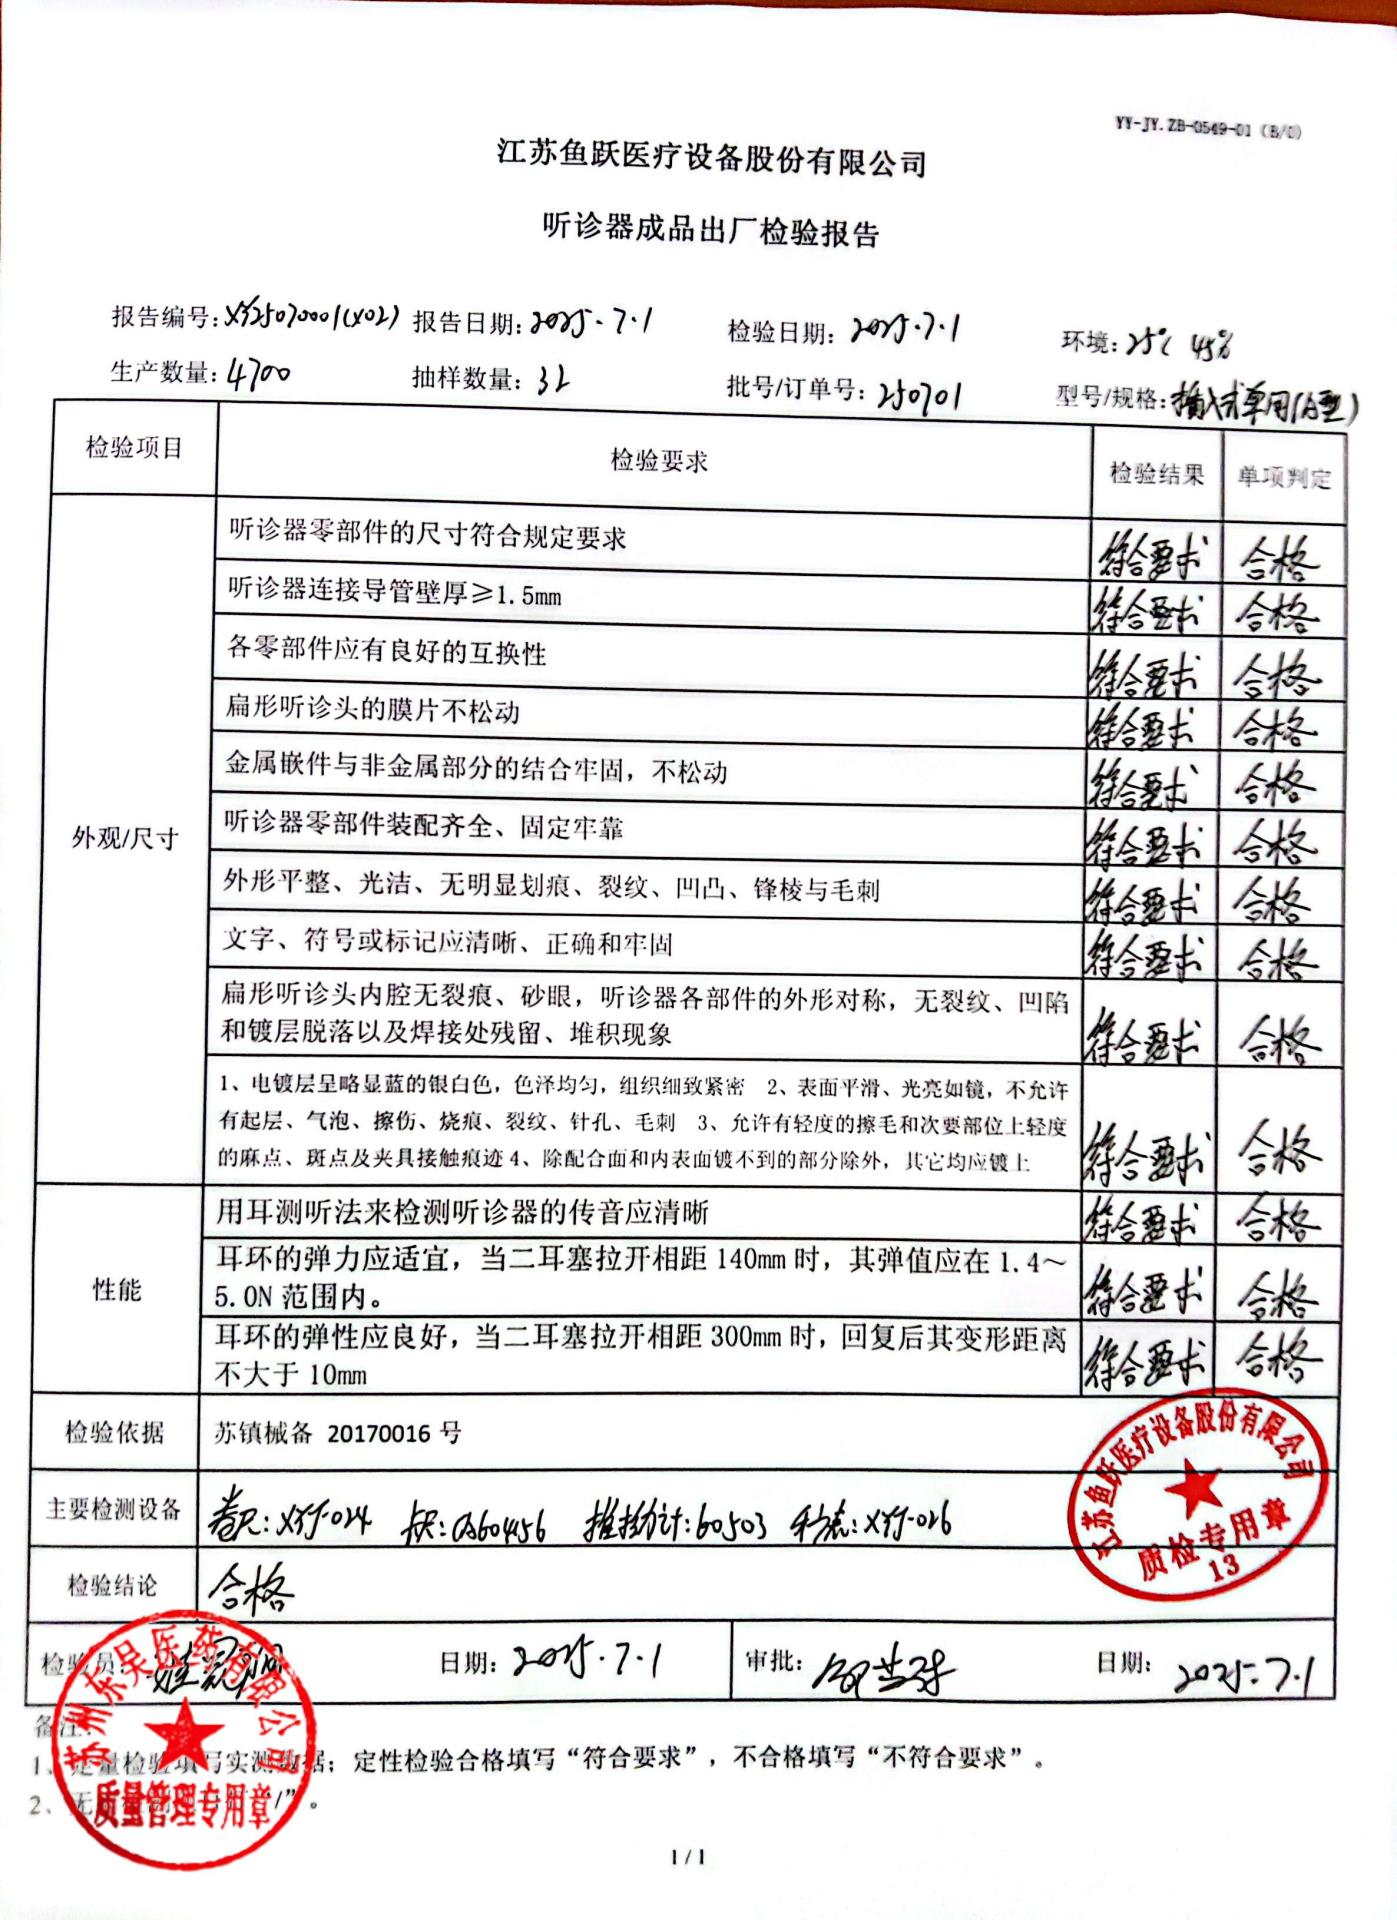 YY-JY.ZB-0549-01 (B/0)
江苏鱼跃医疗设备股份有限公司
听诊器成品出厂检验报告
报告编号:XY25070001(X02) 报告日期:2025.7.1 检验日期:2025.7.1 环境:25℃ 45%
生产数量:4700 抽样数量:32 批号/订单号:250701 型号/规格:插入式单用(A型)
检验项目 检验要求 检验结果 单项判定
外观/尺寸
听诊器零部件的尺寸符合规定要求 符合要求 合格
听诊器连接导管壁厚≥1.5mm 符合要求 合格
各零部件应有良好的互换性 符合要求 合格
扁形听诊头的膜片不松动 符合要求 合格
金属嵌件与非金属部分的结合牢固，不松动 符合要求 合格
听诊器零部件装配齐全、固定牢靠 符合要求 合格
外形平整、光洁、无明显划痕、裂纹、凹凸、锋棱与毛刺 符合要求 合格
文字、符号或标记应清晰、正确和牢固 符合要求 合格
扁形听诊头内腔无裂痕、砂眼，听诊器各部件的外形对称，无裂纹、凹陷
和镀层脱落以及焊接处残留、堆积现象 符合要求 合格
1、电镀层呈略显蓝的银白色，色泽均匀，组织细致紧密 2、表面平滑、光亮如镜，不允许
有起层、气泡、擦伤、烧痕、裂纹、针孔、毛刺 3、允许有轻度的擦毛和次要部位上轻度
的麻点、斑点及夹具接触痕迹 4、除配合面和内表面镀不到的部分除外，其它均应镀上 符合要求 合格
性能
用耳测听法来检测听诊器的传音应清晰 符合要求 合格
耳环的弹力应适宜，当二耳塞拉开相距 140mm 时，其弹值应在 1.4～
5.0N 范围内。 符合要求 合格
耳环的弹性应良好，当二耳塞拉开相距 300mm 时，回复后其变形距离
不大于 10mm 符合要求 合格
检验依据 苏镇械备 20170016 号
主要检测设备 卷尺:XYJ-024 卡尺: 推拉力计:60503 XYJ-026
江苏鱼跃医疗设备股份有限公司
质检专用章
13
检验结论 合格
检验员: 日期:2025.7.1 审批: 日期:2025.7.1
苏州东吴医药有限公司
质量管理专用章
备注:
1、定量检验填写实测数据；定性检验合格填写“符合要求”，不合格填写“不符合要求”。
2、无 “/”。
1 / 1